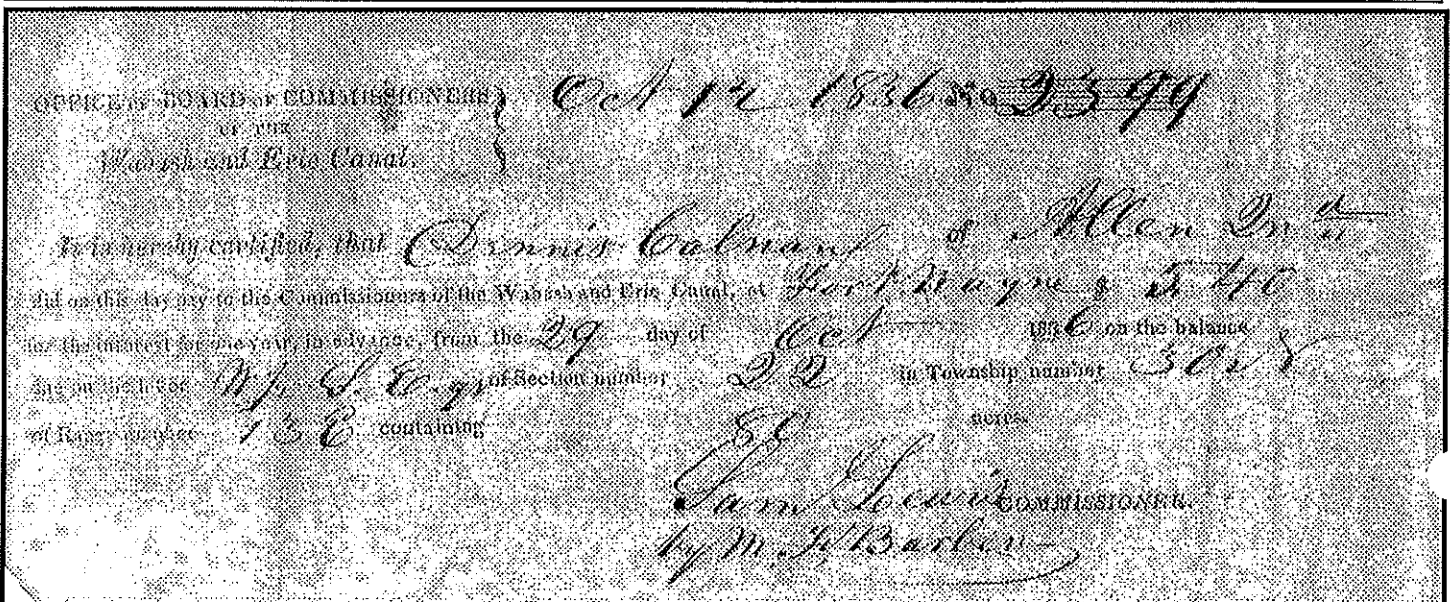 OFFICE OF BOARD OF COMMISSIONERS } Oct 12 1836 NO. 2399
OF THE
Wabash and Erie Canal.
It is hereby certified, that Dennis Calnan of Allen
did on this day pay to the Commissioners of the Wabash and Erie Canal, at Fort Wayne $ 5.40
for the interest for one year, in advance, from the 29 day of Oct 1836 on the balance
due on the of Section number 22 in Township number 30
of Range number 13 E containing acres.
Sam Lewis COMMISSIONER.
by M.